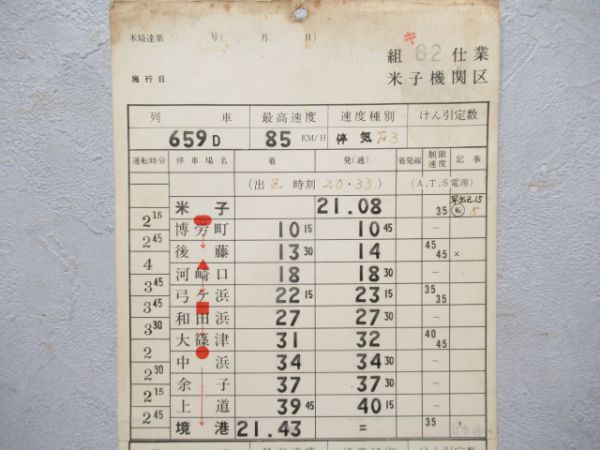 米局達第 号( 月 日)
施行日
キ
組 62 仕業
米子機関区
列 車 最高速度 速度種別 けん引定数
659D 85 KM/H 停気
運転時分 停車場名 着 発(通) 着発線 制限速度 記事
(出区 時刻 20・33) (A.T.S電源)
米子 21.08 35 転
2 15
博労町 10 15 10 45 ~
2 45
後藤 13 30 14 45 45 ×
4
河崎口 18 18 30 ~
3 45
弓ケ浜 22 15 23 15 35 35
3 45
和田浜 27 27 30 ~
3 30
大篠津 31 32 40 45
2
中浜 34 34 30 ~
2 30
余子 37 37 30 ~
2 15
上道 39 45 40 15 ~
2 45
境港 21.43 = 35